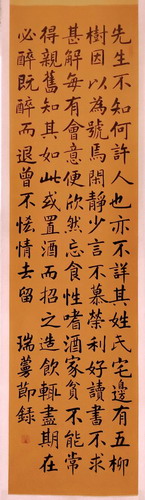 先生不知何許人也亦不詳其姓氏宅邊有五柳
樹因以為號焉閑靜少言不慕榮利好讀書不求
甚解每有會意便欣然忘食性嗜酒家貧不能常
得親舊知其如此或置酒而招之造飲輒盡期在
必醉既醉而退曾不恡情去留 瑞蔓節録